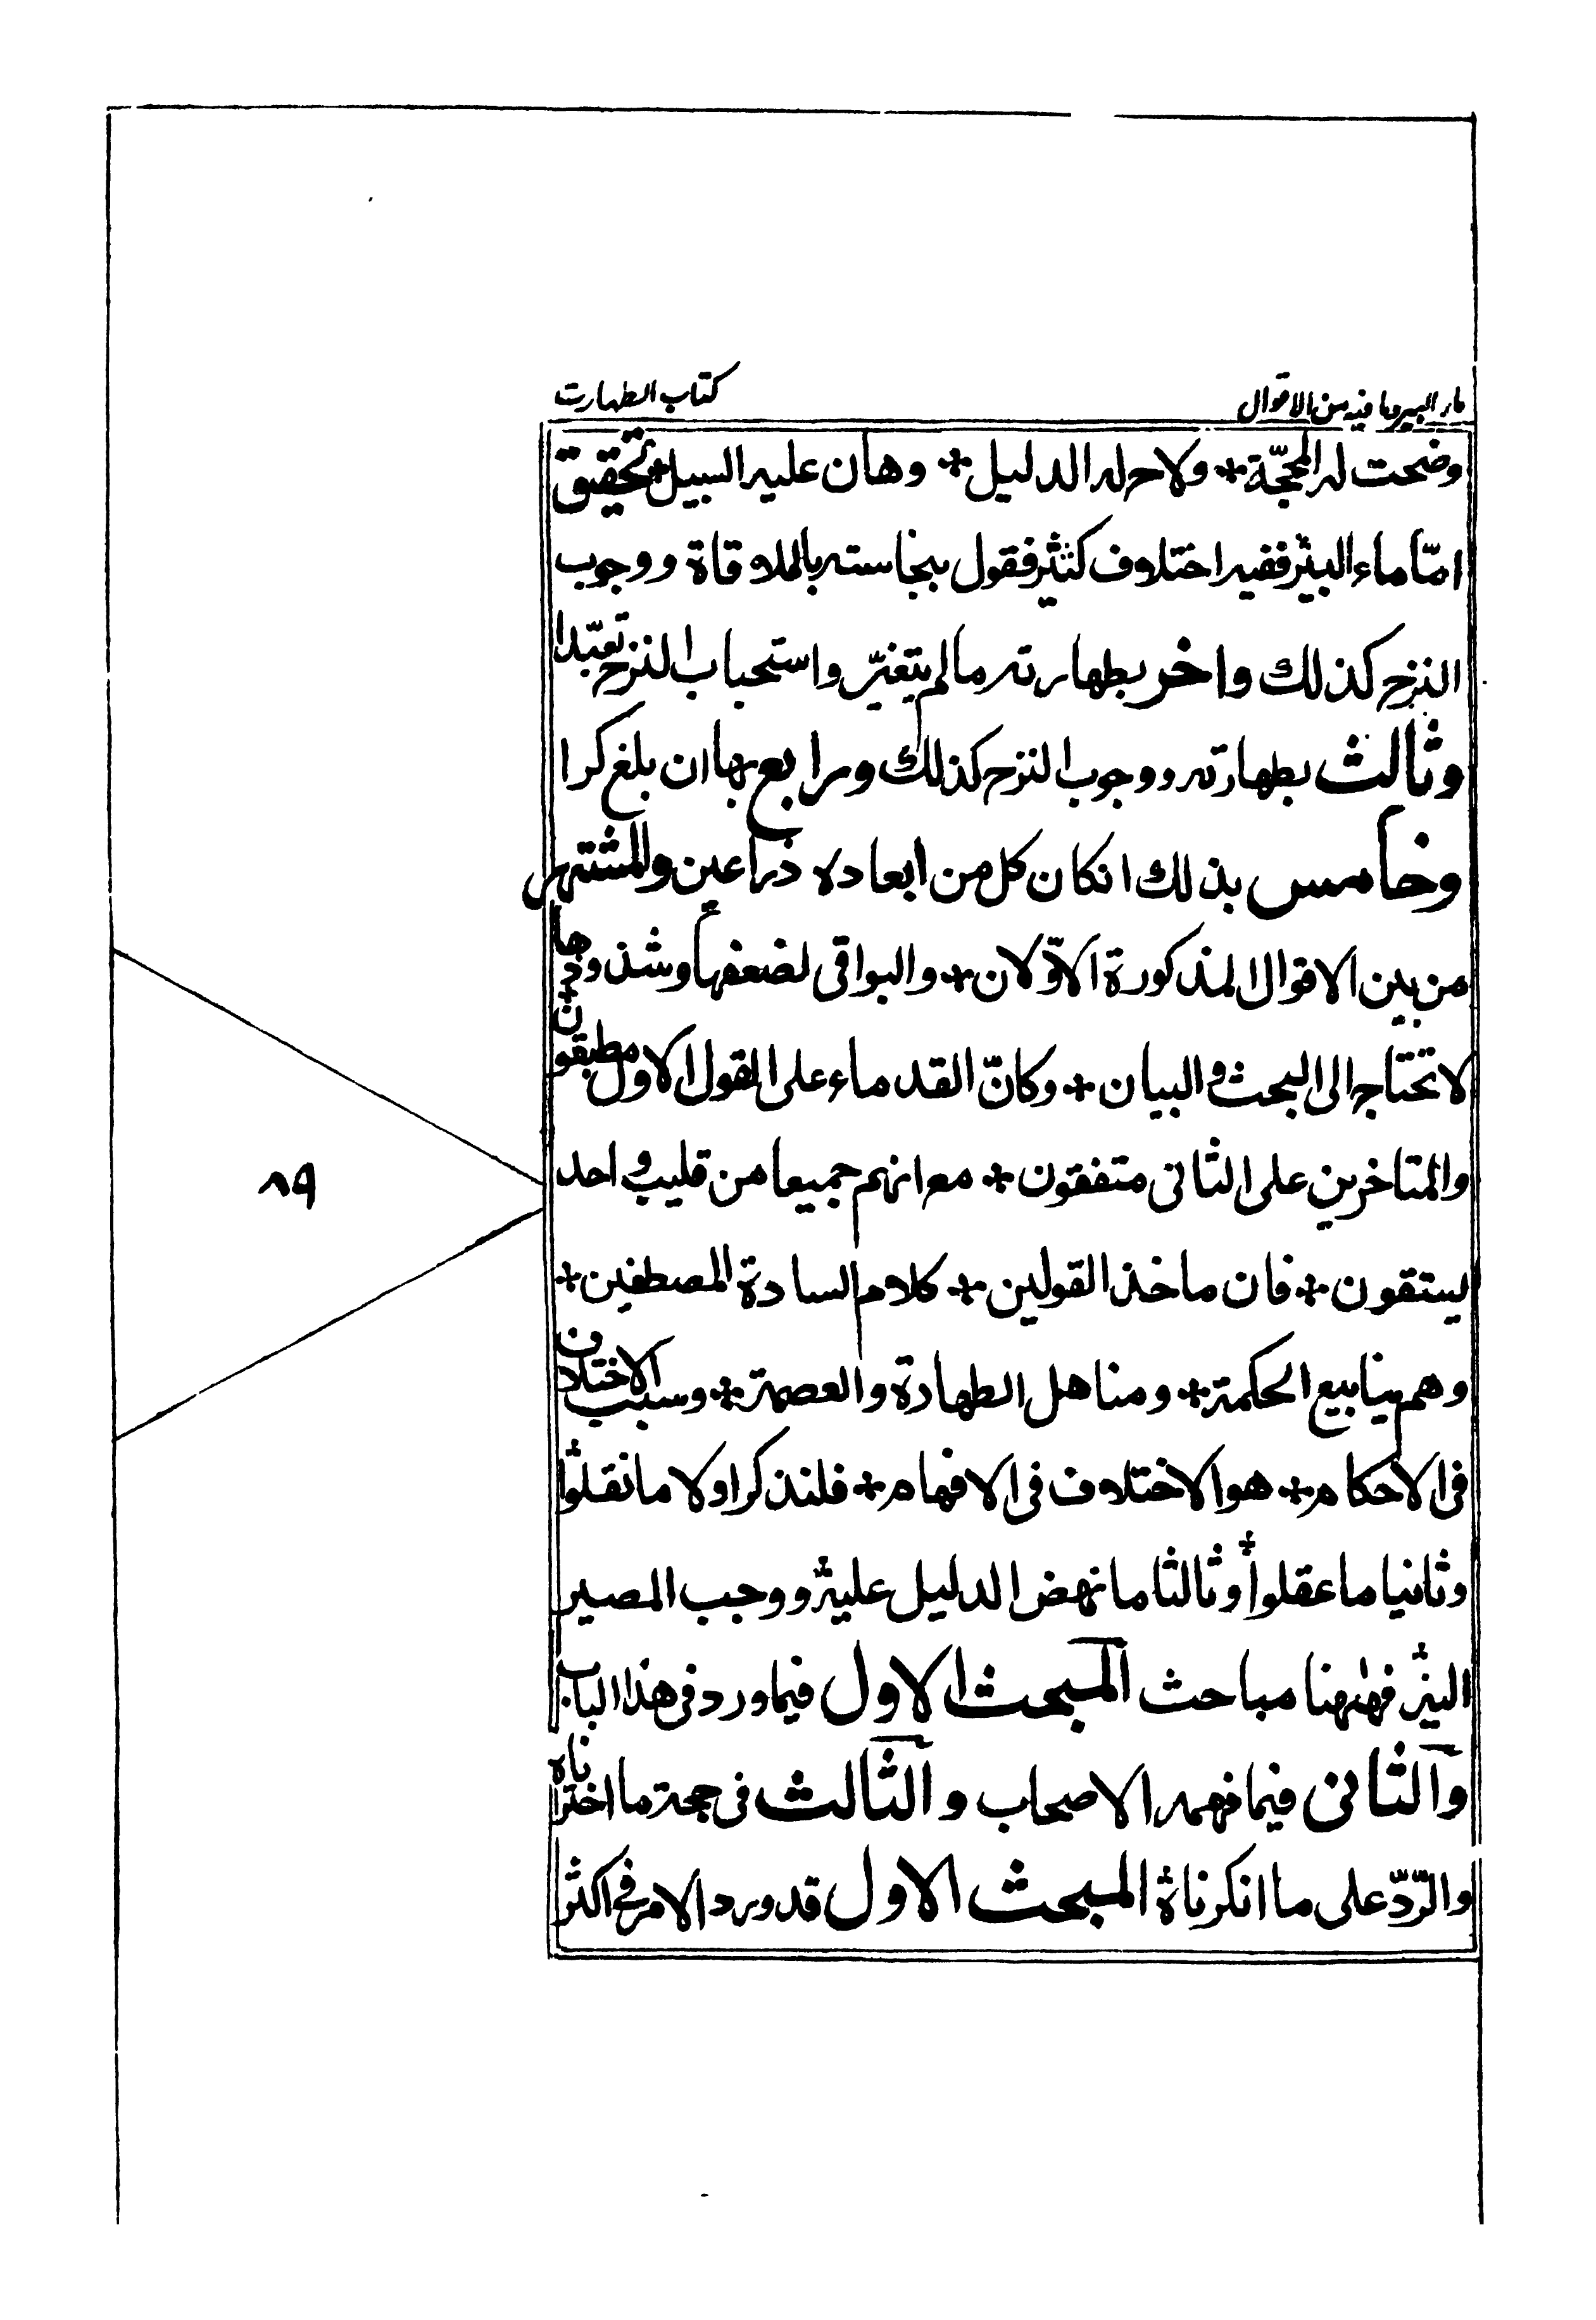 ماء البير وما فيه من الاقوال
كتاب الطهارت
وضحت له المحجّة * ولاح له الدليل * وهان عليه السبيل * تحقيق
امّا ماء البئر ففيه اختلاف كثير فقول بنجاسته بالملاقاة ووجوب
النزح كذلك واخر بطهارته ما لم يتغيّر واستحباب النزح تعبّدا
وثالث بطهارته ووجوب النزح كذلك ورابع بها ان بلغ كرا
وخامس بذلك ان كان كل من ابعاده ذراعين والمشتهر
من بين الاقوال المذكورة الاوّلان * والبواقى لضعفها وشذوذها
لا تحتاج الى البحث والبيان * وكانّ القدماء على القول الاول مطبقون *
والمتاخرين على الثانى متفقون * مع انهم جميعا من قليب واحد
يستقون * فان ماخذ القولين * كلام السادة المصطفين *
وهم ينابيع الحكمة * ومناهل الطهارة والعصمة * وسبب الاختلاف
فى الاحكام * هو الاختلاف فى الافهام * فلنذكر اولا ما نقلوا
وثانيا ما عقلوا وثالثا ما نهض الدليل عليه ووجب المصير
اليه فههنا مباحث المبحث الاول فيما ورد فى هذا الباب
والثانى فيما فهمه الاصحاب والثالث فى حجة ما اخترناه
والرّدّ على ما انكرناه المبحث الاول قد ورد الامر فى اكثر
٨٩